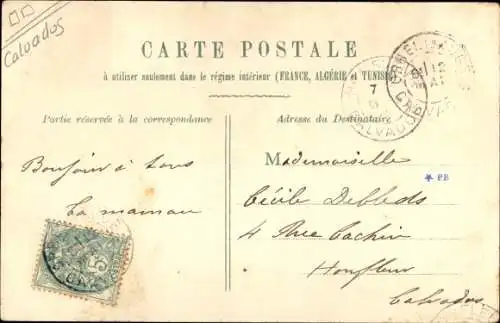 Calvados
CARTE POSTALE
à utiliser seulement dans le régime intérieur (FRANCE, ALGÉRIE et TUNISIE)
Partie réservée à la correspondance
Adresse du Destinataire
Bonjour à tous
La maman
Mademoiselle
* PB
Cécile
4 Rue Cachin
Honfleur
Calvados
CALVADOS
7
5